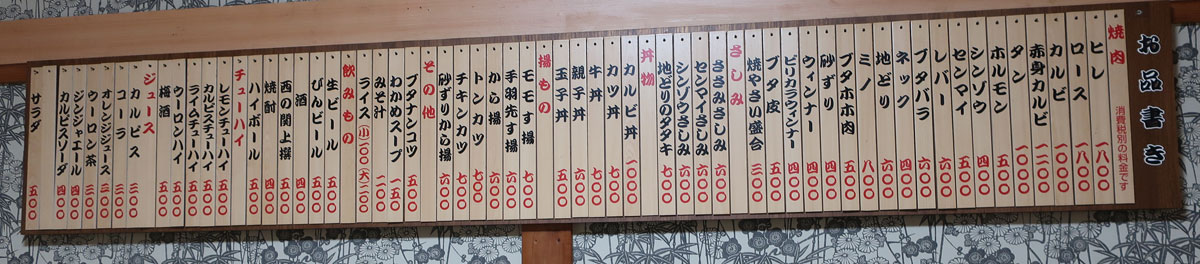 お品書き
消費税別の料金です
焼肉
ヒレ 一八〇〇
ロース 一八〇〇
カルビ 一〇〇〇
赤身カルビ 一二〇〇
タン 一〇〇〇
ホルモン 五〇〇
シンゾウ 五〇〇
センマイ 五〇〇
レバー 五〇〇
ブタバラ 六〇〇
ネック 四〇〇
地どり 六〇〇
ミノ 八〇〇
ブタホホ肉 五〇〇
砂ずり 四〇〇
ウィンナー 四〇〇
ピリカラウィンナー 四〇〇
ブタ皮 五〇〇
焼やさい盛合 三〇〇
さしみ
ささみさしみ 六〇〇
センマイさしみ 六〇〇
シンゾウさしみ 六〇〇
地どりのタタキ 七〇〇
丼物
カルビ丼 一〇〇〇
カツ丼 七〇〇
牛丼 七〇〇
親子丼 六〇〇
玉子丼 五〇〇
揚もの
モモす揚 七〇〇
手羽先す揚 六〇〇
から揚 六〇〇
トンカツ 七〇〇
チキンカツ 七〇〇
砂ずりから揚 六〇〇
その他
ブタナンコツ 五〇〇
わかめスープ 一五〇
みそ汁 一〇〇
ライス (小)一〇〇 (大)二〇〇
飲みもの
生ビール 五〇〇
びんビール 五〇〇
西の関上撰 五〇〇
焼酎 四〇〇
ハイボール 五〇〇
チューハイ
レモンチューハイ 五〇〇
カルピスチューハイ 五〇〇
ライムチューハイ 五〇〇
ウーロンハイ 四〇〇
梅酒 四〇〇
ジュース
カルピス 三〇〇
コーラ 三〇〇
オレンジジュース 三〇〇
ウーロン茶 三〇〇
ジンジャエール 四〇〇
カルピスソーダ 四〇〇
サラダ 五〇〇